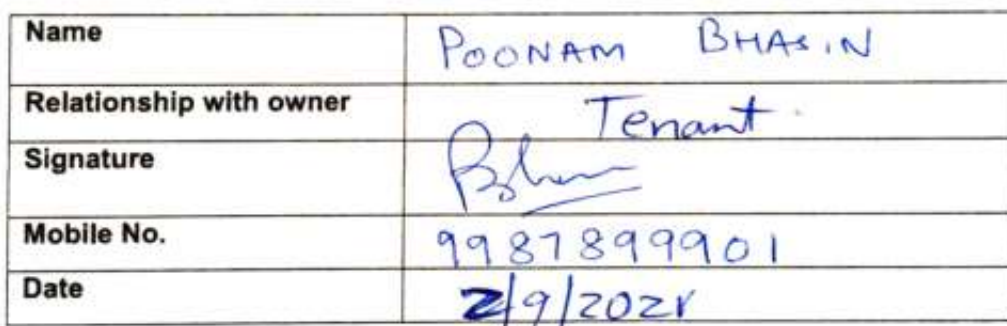 Name POONAM BHASIN
Relationship with owner Tenant.
Signature
Mobile No. 9987899901
Date 2/9/2021